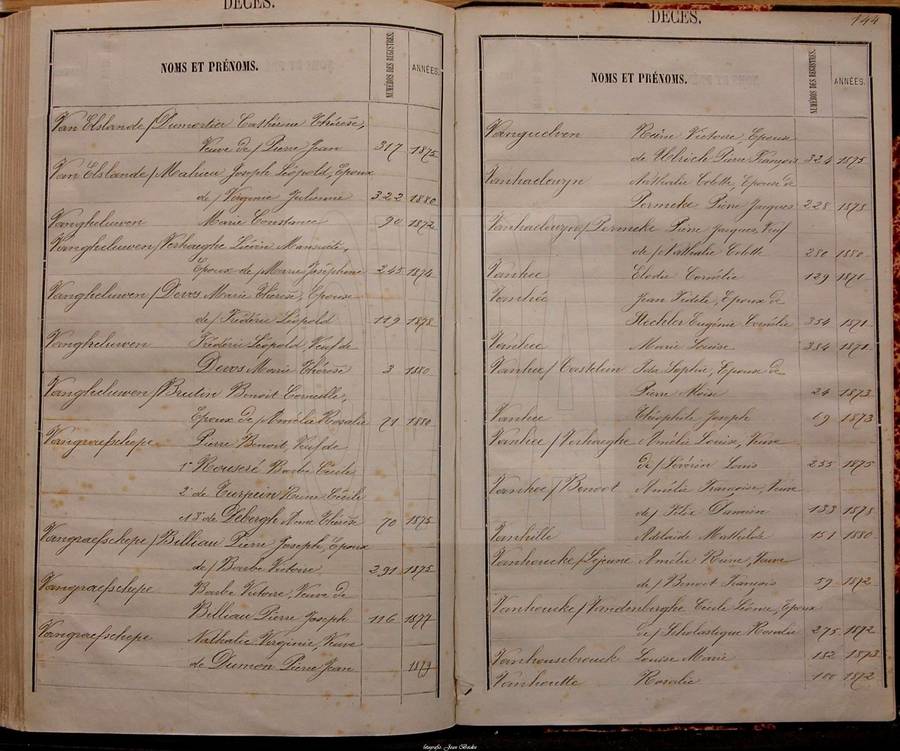 DÉCÈS.
NOMS ET PRÉNOMS.
NUMÉROS DES REGISTRES.
ANNÉES.
Van Elslande / Dumortier Catherine Thérèse,
Veuve de / Pierre Jean 317 1875
Van Elslande / Mahieu Joseph Léopold, Epoux
de / Virginie Julienne 322 1880
Vangheluwen Marie Constance 90 1872
Vangheluwen / Verhaeghe Liévin Mansuète,
Epoux de Marie Joséphine 245 1874
Vangheluwen / Devos Marie Thérèse, Epouse
de / Frédéric Léopold 119 1878
Vangheluwen Frédéric Léopold, Veuf de
Devos Marie Thérèse 3 1880
Vangheluwen / Benoit Corneille,
Epoux de / Amélie Rosalie 71 1880
Vangraefschepe Pierre Benoit, Veuf de
1° Barbe Cécile
2° de Turpein Reine Cécile
& 3° de Debergh Anne Thérèse 70 1875
Vangraefschepe / Billiau Pierre Joseph, Epoux
de / Barbe Victoire 291 1875
Vangraefschepe Barbe Victoire, Veuve de
Billiau Pierre Joseph 116 1877
Vangraefschepe Nathalie Virginie, Veuve
de Dumon Pierre Jean 1879
DÉCÈS.
144
NOMS ET PRÉNOMS.
NUMÉROS DES REGISTRES.
ANNÉES.
Reine Victoire, Epouse
de Ulrich Pierre François 324 1875
Vanhaelewyn Nathalie Colette, Epouse de
Permeke Pierre Jacques 228 1878
Vanhaelewyn / Permeke Pierre Jacques, Veuf
de / Nathalie Colette 280 1880
Vanhee Elodie Cornélie 129 1871
Vanhée Jean Fidèle, Epoux de
Stechler Eugénie Cornélie 354 1871
Vanhee Marie Louise 384 1871
Vanhee / Castelein Ida Sophie, Epouse de
Pierre Aloïse 24 1873
Vanhee Théophile Joseph 69 1873
Vanhee / Verhaeghe Amélie Louise, Veuve
de / Séverin Louis 255 1875
Vanhee / Benoot Amélie Françoise, Veuve
de / Félix Damien 133 1878
Vanhille Adelaïde Mathilde 151 1880
Vanhoucke / Lejeune Amélie Reine, Veuve
de / Benoit François 59 1872
Vanhoucke / Vandenberghe Cécile Léonie, Epoux
de / Scholastique Rosalie 275 1872
Vanhousebrouck Louise Marie 182 1873
Vanhoutte Rosalie 100 1872
fotografie Jean Backx